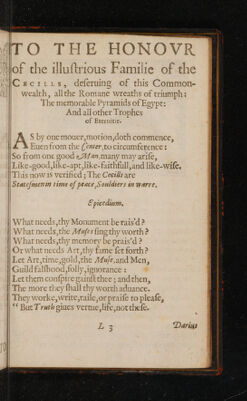 TO THE HONOVR
of the illuſtrious Familie of the
CECILLS, deſeruing of this Common-
wealth, all the Romane wreaths of triumph:
The memorable Pyramids of Egypt:
And all other Trophes
of Eternitie.
AS by one mouer, motion, doth commence,
Euen from the Center, to circumference:
So from one good Man, many may ariſe,
Like-good, like-apt, like-faithfull, and like-wiſe.
This now is verified; The Cecills are
Stateſmen in time of peace, Souldiers in warre.
Epicedium.
What needs, thy Monument be rais'd?
What needs, the Muſes ſing thy worth?
What needs, thy memory be prais'd?
Or what needs Art, thy fame ſet forth?
Let Art, time, gold, the Muſe, and Men,
Guild falſhood, folly, ignorance:
Let them conſpire gainſt thee; and then,
The more they ſhall thy worth aduance.
They worke, write, raile, or praiſe to pleaſe,
“ But Truth giues vertue, life, not theſe.
L 3
Darius